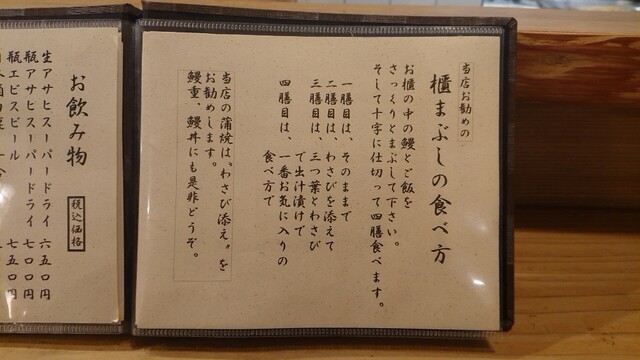 当店お勧めの
櫃まぶしの食べ方
お櫃の中の鰻とご飯を
さっくりとまぶして下さい。
そして十字に仕切って四膳食べます。
一膳目は、そのままで
二膳目は、わさびを添えて
三膳目は、三つ葉とわさび
で出汁漬けで
四膳目は、一番お気に入りの
食べ方で
当店の蒲焼は〟わさび添え〟を
お勧めします。
鰻重、鰻丼にも是非どうぞ。
お飲み物
税込価格
生アサヒスーパードライ 六五〇円
瓶アサヒスーパードライ 七〇〇円
瓶エビスビール 七五〇円